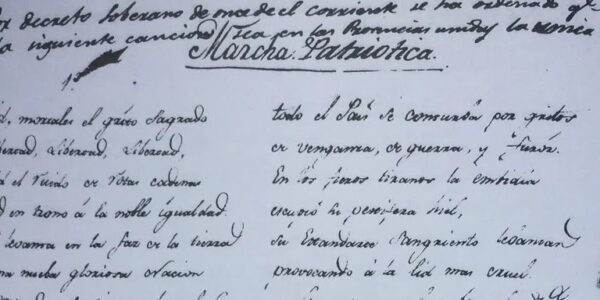 or decreto soberano de once de el corriente se ha ordenado qe
a siguiente cancion sea en las Provincias unidas la unica
Marcha Patriotica.
mortales el grito Sagrado
Libertad, Libertad,
el ruido de rotas cadena
en trono á la noble igualdad.
levanta en la faz de la tierra
nueba gloriosa Nacion
todo el Pais se conturba por gritos
de venganza, de guerra, y furor.
En los fieros tiranos la embidia
escupió su pestifera hiel,
Su Estandarte Sangriento lebantan
provocando á la lid mas cruel.